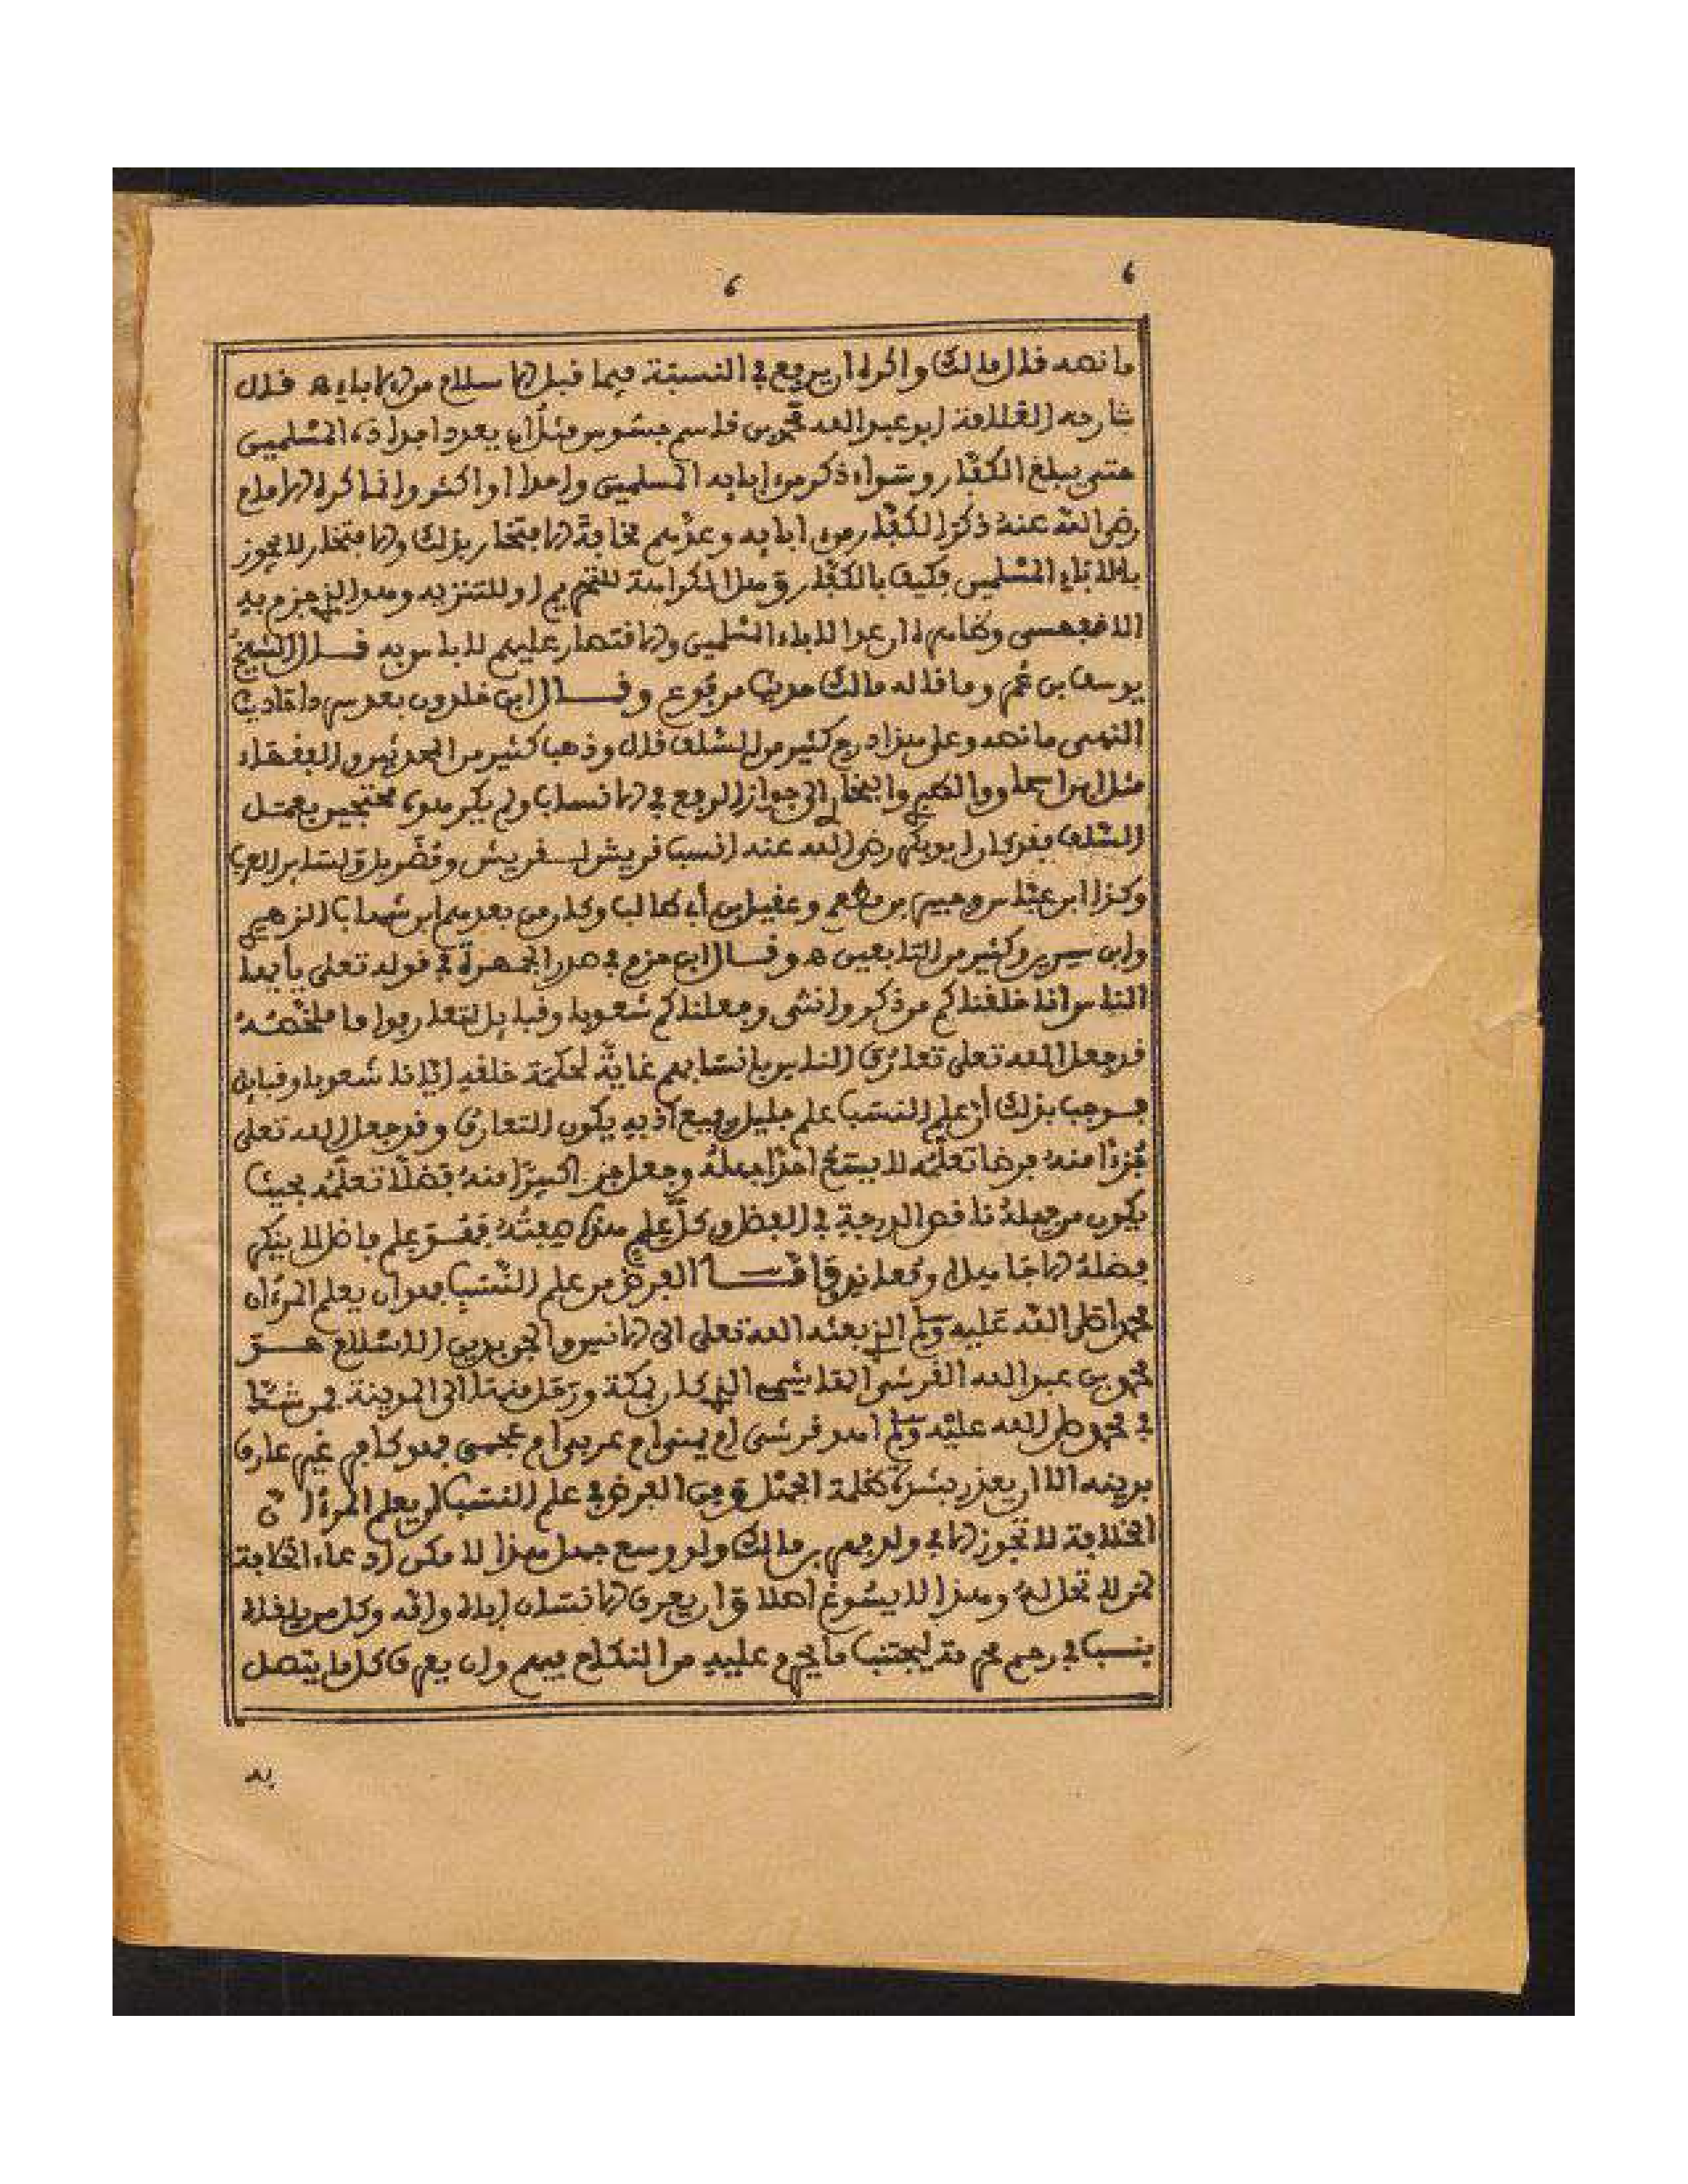 ما نصه قال مالك واكره ان يرفع في النسبة فيما قبل الاسلام من الاباء ه قال
شارحه العلامة ابو عبد الله محمد بن قاسم جسوس مثلا ان يعد اجداده المسلمين
حتى يبلغ الكفار وسواء ذكر من ابايه المسلمين واحدا او اكثر وانما كره الامام
رضي الله عنه ذكر الكفار من ابايه وعدهم مخافة الافتخار بذلك والافتخار لا يجوز
بالاباء المسلمين فكيف بالكفار وهل الكراهة للتحريم او للتنزيه وهو الذي جزم به
الاقفهسي وظاهره ان عد الاباء المسلمين والاقتصار عليهم لا باس به قال الشيخ
يوسف بن عمر وما قاله مالك حديث مرفوع وقال ابن خلدون بعد سرد احاديث
النهي ما نصه وعلى هذا درج كثير من السلف قال وذهب كثير من المحدثين والفقهاء
مثل ابن اسحاق والطبري والبخاري الى جواز الرفع في الانساب ولم يكرهوه محتجين بعمل
السلف فقد كان ابو بكر رضي الله عنه انسب قريش لقريش ومضر بل ولسائر العرب
وكذا ابن عباس وجبير بن مطعم وعقيل بن أبي طالب وكان من بعدهم ابن شهاب الزهري
وابن سيرين وكثير من التابعين ه وقال ابن حزم في صدر الجمهرة في قوله تعلى يأيها
الناس انا خلقناكم من ذكر وانثى وجعلناكم شعوبا وقبايل لتعارفوا ما ملخصه
قد جعل الله تعلى تعارف الناس بانسابهم غاية لحكمة خلقه ايانا شعوبا وقبايل
فوجب بذلك أن علم النسب علم جليل رفيع اذ به يكون التعارف وقد جعل الله تعلى
جزءا منه فرضا تعلمه لا يسع احدا جهله وجعل جزءا يسيرا منه فضلا تعلمه بحيث
يكون من جهله ناقص الدرجة في الفضل وكل علم هذه صفته فهو علم فاضل لا ينكر
فضله الا جاهل او معاند فأما الفرض من علم النسب فهو ان يعلم المرء ان
محمدا صلى الله عليه وسلم الذي بعثه الله تعلى الى الانس والجن بدين الاسلام هو
محمد بن عبد الله القرشي الهاشمي الذي كان بمكة ورحل منها الى المدينة فمن شك
في محمد صلى الله عليه وسلم اهو قرشي ام يمني ام عربي ام عجمي فهو كافر غير عارف
بدينه الا ان يعذر بشدة ظلمة الجهل ومن الفرض في علم النسب ان يعلم المرء ان
الخلافة لا تجوز الا في ولد فهر بن مالك ولو وسع جهل هذا لامكن ادعاء الخلافة
لمن لا تحل له وهذا لا يسوغ اصلا وان يعرف الانسان اباه وامه وكل من يلقاه
بنسب في رحم محرمة ليجتنب ما يحرم عليه من النكاح فيهم وان يعرف كل ما يتصل
به